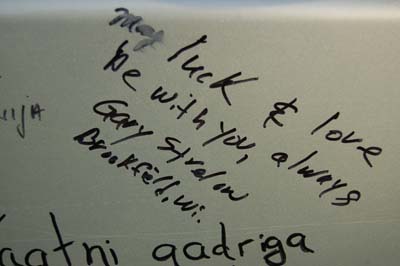 may luck & love
be with you, always
Gary Strelow
Brookfield, Wi.
aatni qadriga